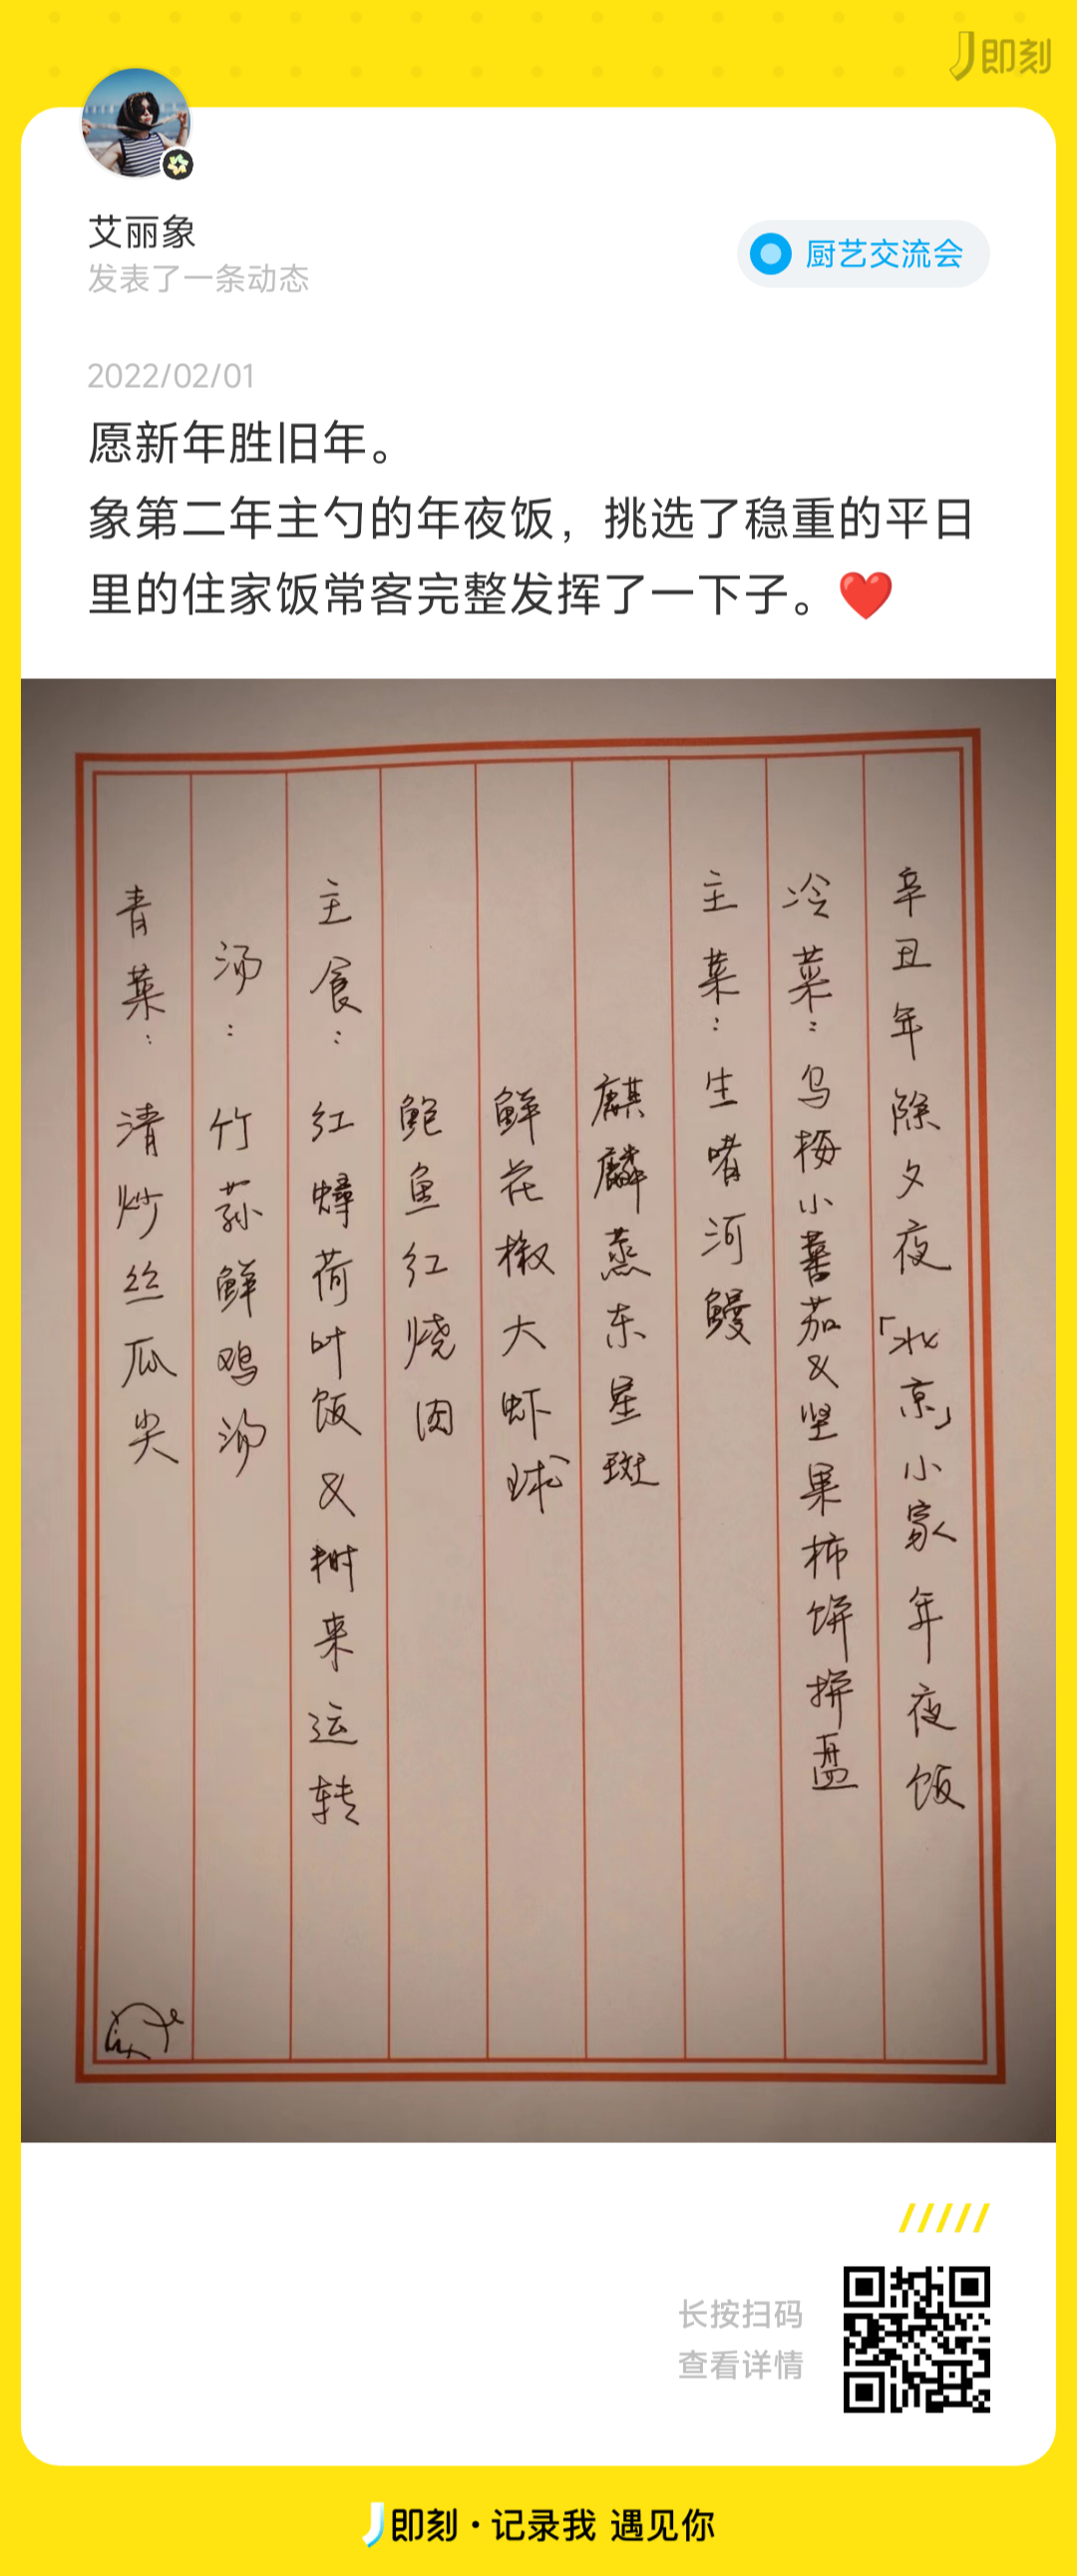 即刻
艾丽象
发表了一条动态
厨艺交流会
2022/02/01
愿新年胜旧年。
象第二年主勺的年夜饭，挑选了稳重的平日
里的住家饭常客完整发挥了一下子。❤️
辛丑年除夕夜「北京」小家年夜饭
冷菜：乌梅小蕃茄&坚果柿饼拼盘
主菜：生啫河鳗
麒麟蒸东星斑
鲜花椒大虾球
鲍鱼红烧肉
主食：红蟳荷叶饭&树来运转
汤：竹荪鲜鸡汤
青菜：清炒丝瓜尖
长按扫码
查看详情
即刻·记录我 遇见你